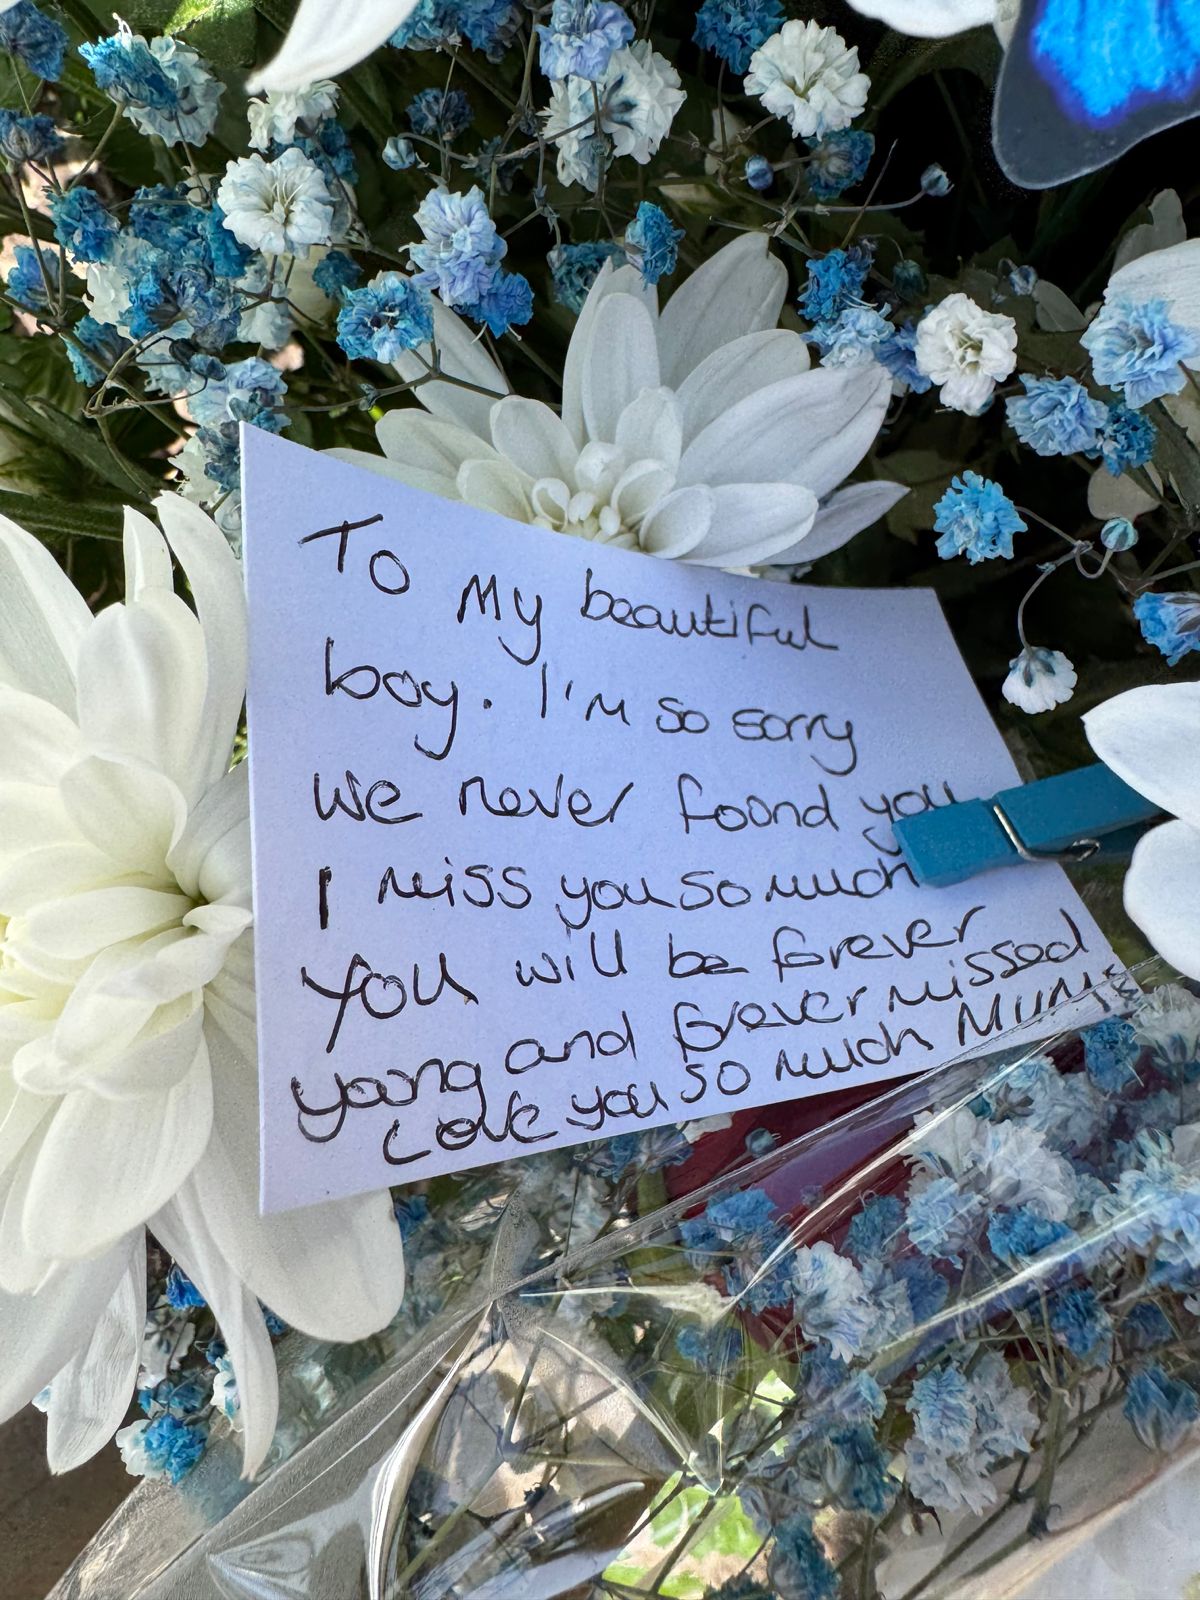 To My beautiful
boy. I'm so sorry
We never found you
I miss you so much
You will be forever
young and forever missed
Love you so much Mum